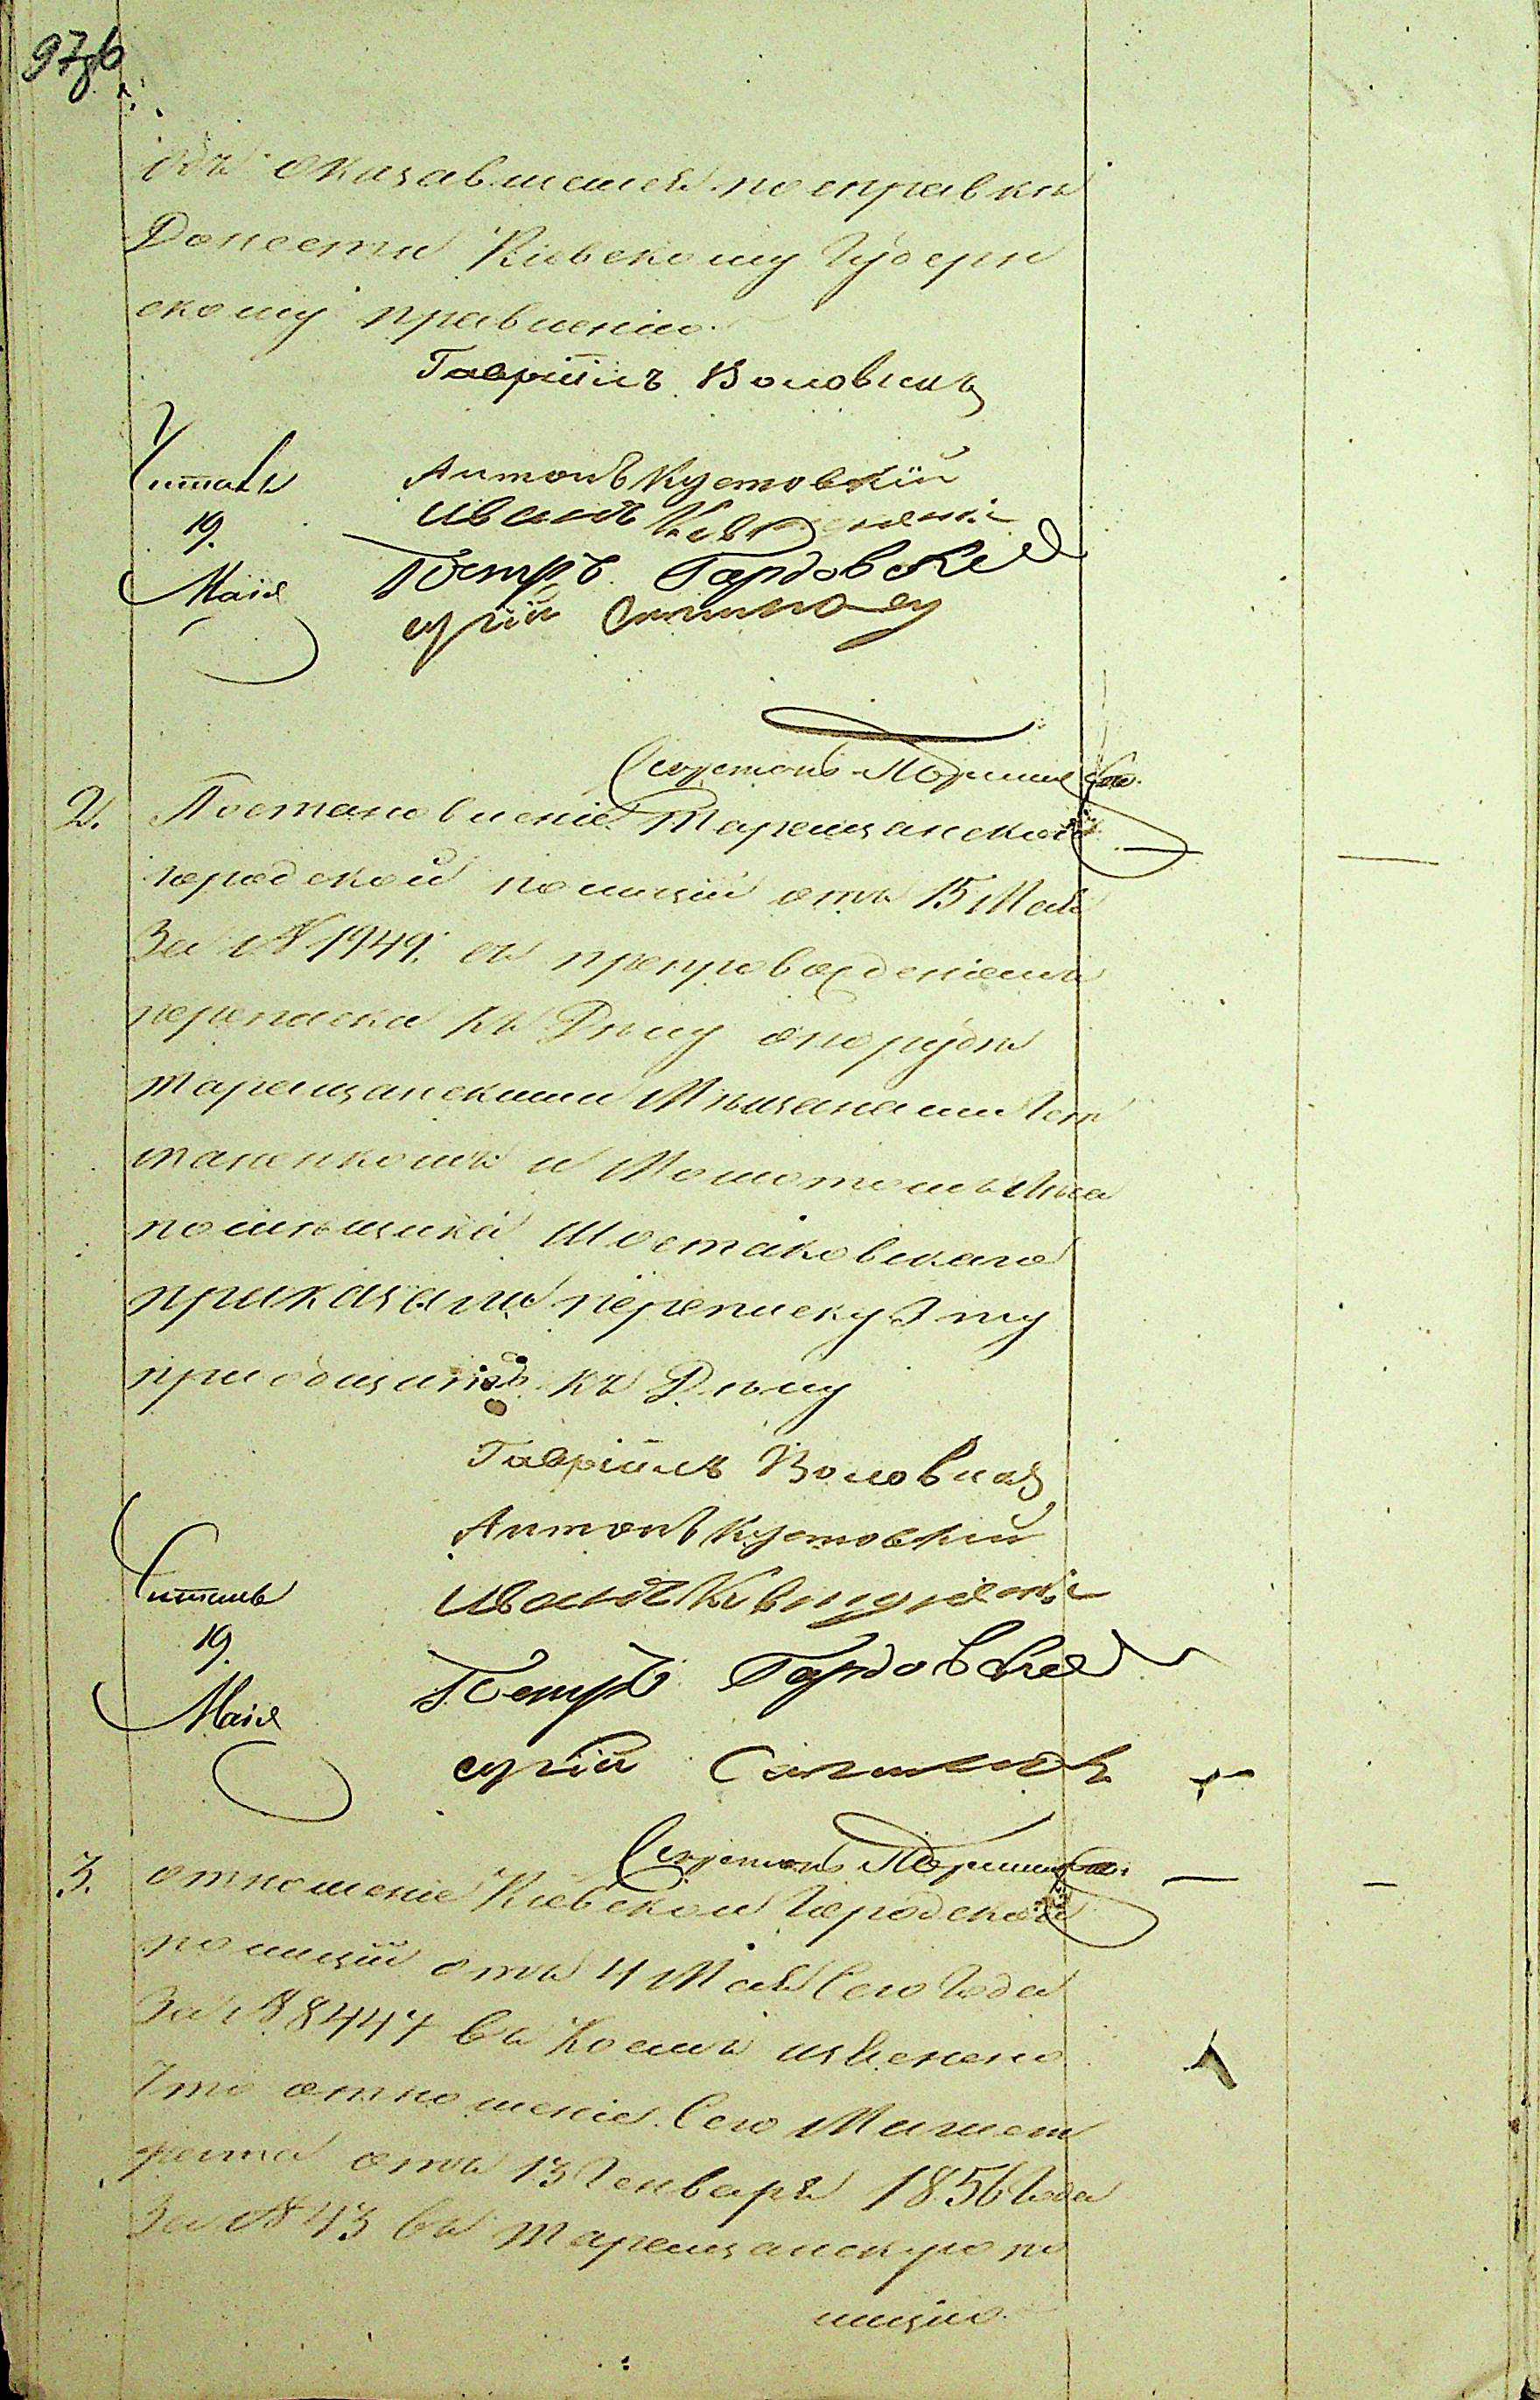 97об
объ оказавшемся по справки
Донести Кіевскому Губерн
скому правленію.
Гавріилъ Воловикъ
Читалъ
Антонъ Кустовскій
19.
Иванъ
Маія
Петръ Гардовскій
Секретарь
2. Постановленіе Таращанской
городской полиціи отъ 15 Мая
За № 1949. съ препровожденіемъ
переписки къ Дѣлу о порубки
таращанскими Мѣщанами
таненкомъ и Молотомъ лѣса
помѣщика Шостаковскаго
приказали переписку эту
приобщить къ Дѣлу
Гавріилъ Воловикъ
Антонъ Кустовскій
Читалъ
Иванъ
19.
Петръ Гардовскій
Маія
Секретарь
3. отношеніе Кіевской Городской
полиціи отъ 4 Мая Сего Года
За № 8447 въ коемъ изъяснено
Что отношеніе Сего Магист
рата отъ 13 Генваря 1856 Года
За № 43 въ таращанскую по
лицію